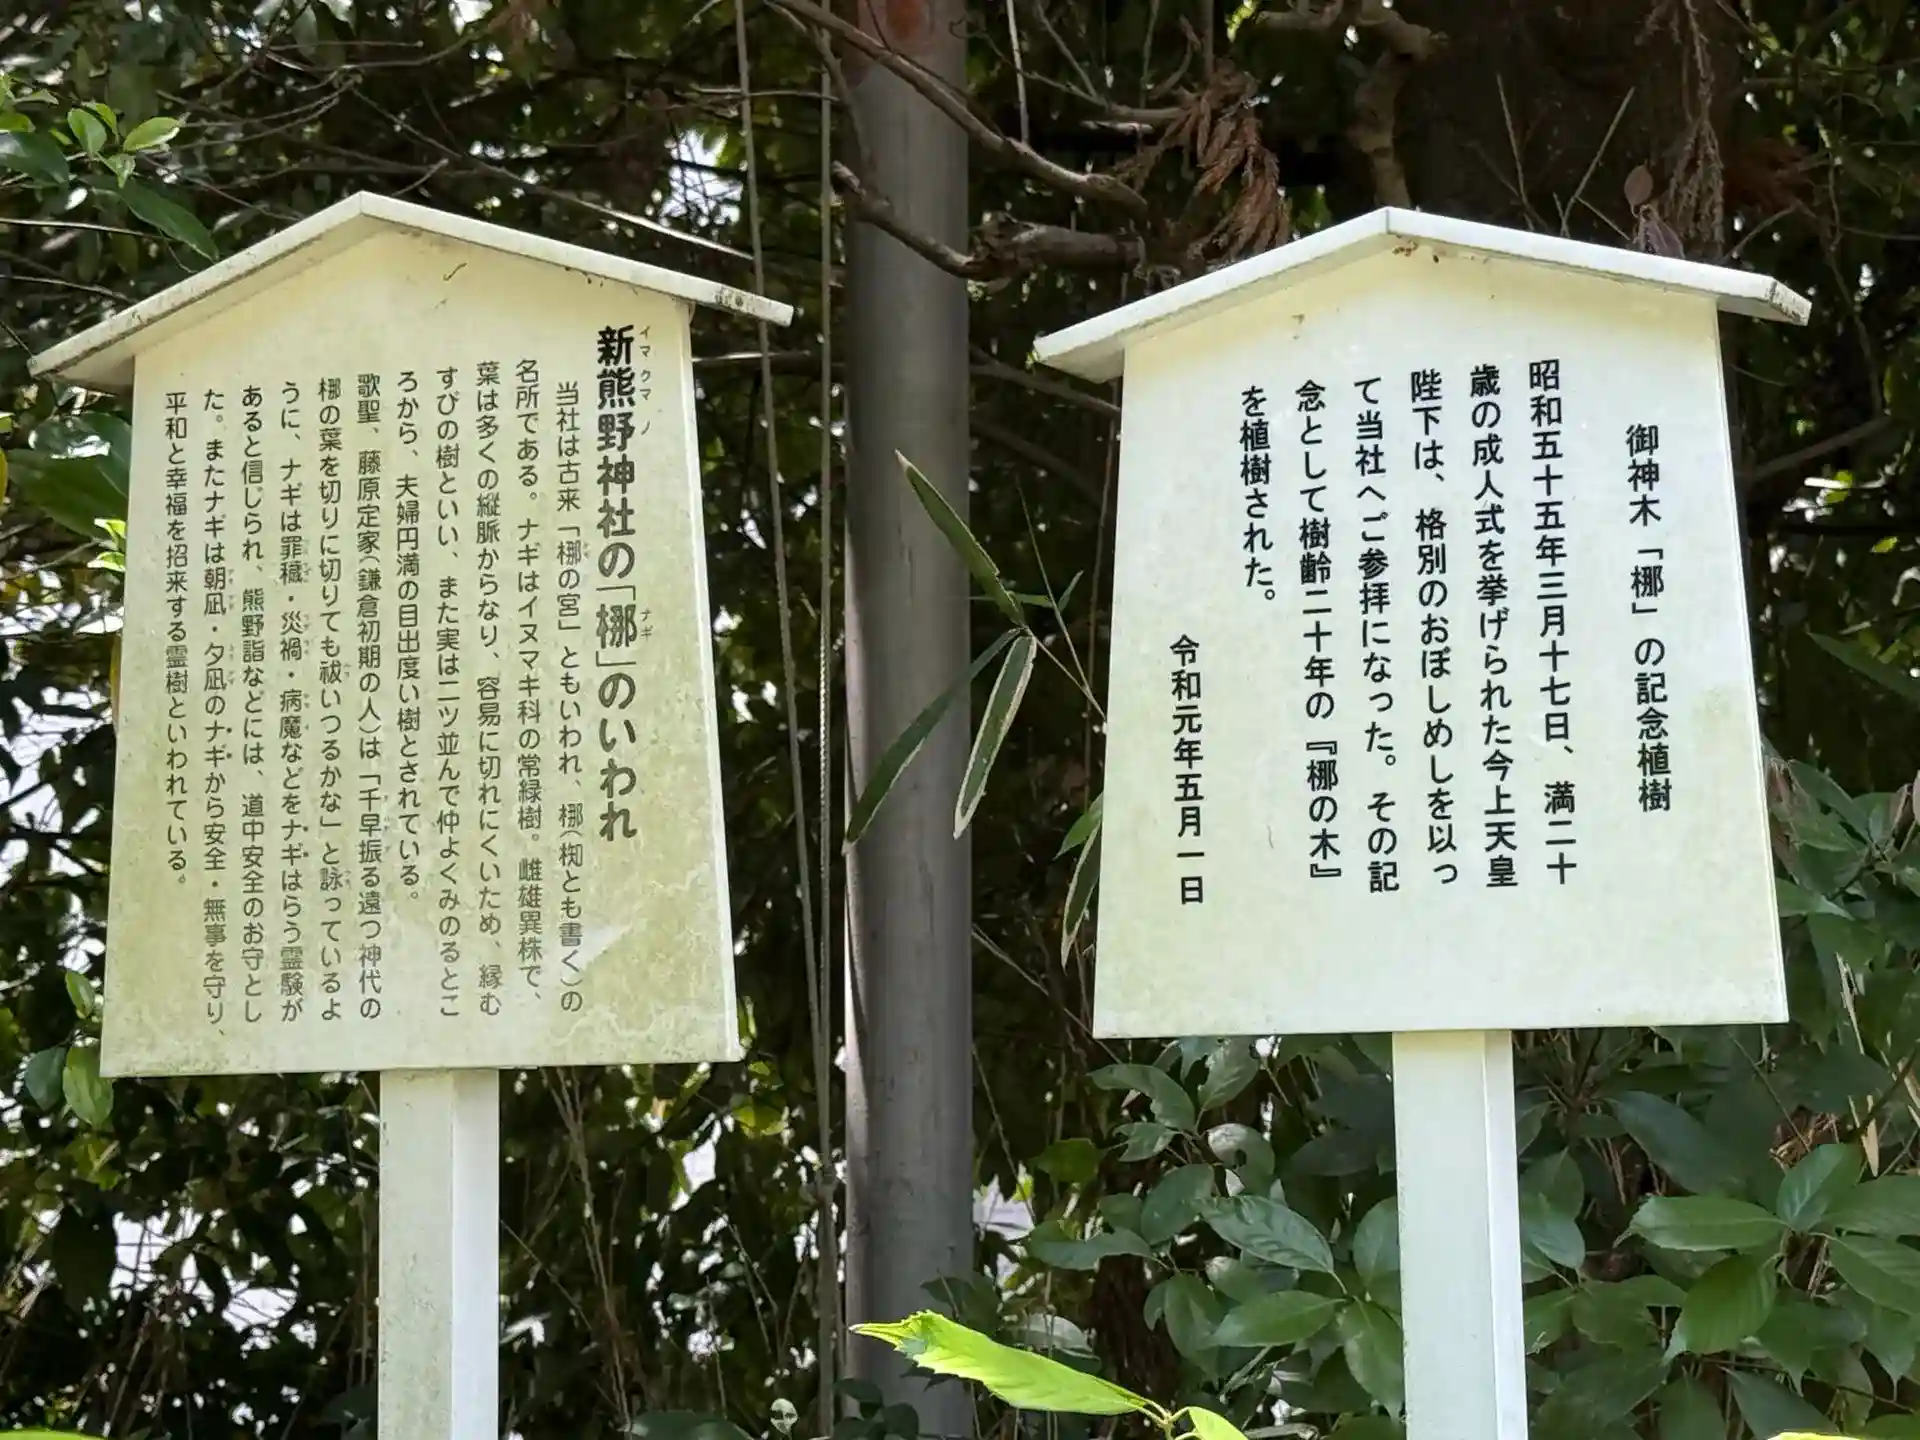 新熊野神社の「梛」のいわれ
イマクマノ
ナギ
当社は古来「梛の宮」ともいわれ、梛(椥とも書く)の
名所である。ナギはイヌマキ科の常緑樹。雌雄異株で、
葉は多くの縦脈からなり、容易に切れにくいため、縁む
すびの樹といい、また実は二ツ並んで仲よくみのるとこ
ろから、夫婦円満の目出度い樹とされている。
歌聖、藤原定家(鎌倉初期の人)は「千早振る遠つ神代の
梛の葉を切りに切りても祓いつるかな」と詠っているよ
うに、ナギは罪穢・災禍・病魔などをナギはらう霊験が
あると信じられ、熊野詣などには、道中安全のお守とし
た。またナギは朝凪・夕凪のナギから安全・無事を守り、
平和と幸福を招来する霊樹といわれている。
御神木「梛」の記念植樹
昭和五十五年三月十七日、満二十
歳の成人式を挙げられた今上天皇
陛下は、格別のおぼしめしを以っ
て当社へご参拝になった。その記
念として樹齢二十年の『梛の木』
を植樹された。
令和元年五月一日